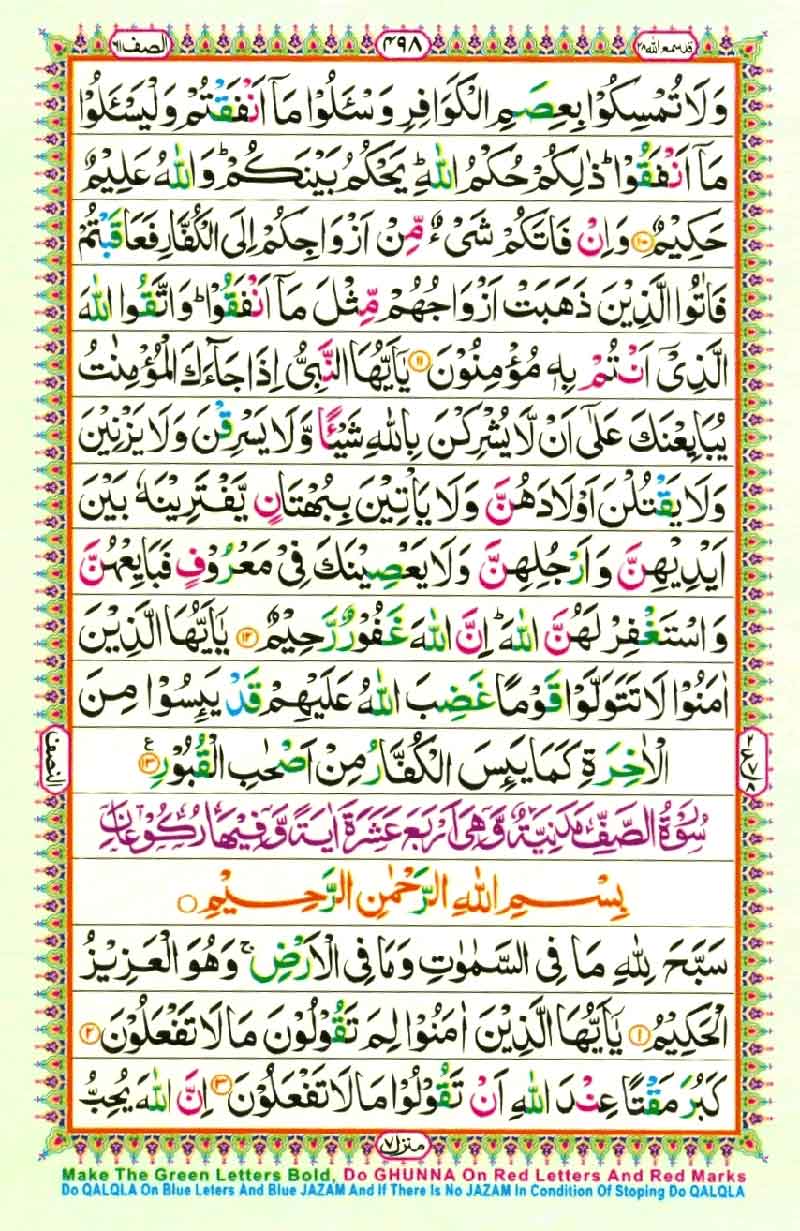 قد سمع الله ٢٨
٤٩٨
الصف ٦١
وَلَا تُمْسِكُوْا بِعِصَمِ الْكَوَافِرِ وَسْـَٔلُوْا مَاۤ اَنْفَقْتُمْ وَلْيَسْـَٔلُوْا
مَاۤ اَنْفَقُوْا ؕ ذٰلِكُمْ حُكْمُ اللّٰهِ ؕ يَحْكُمُ بَيْنَكُمْ ؕ وَاللّٰهُ عَلِيْمٌ
حَكِيْمٌ ۝۱۰ وَاِنْ فَاتَكُمْ شَىْءٌ مِّنْ اَزْوَاجِكُمْ اِلَى الْكُفَّارِ فَعَاقَبْتُمْ
فَاٰتُوا الَّذِيْنَ ذَهَبَتْ اَزْوَاجُهُمْ مِّثْلَ مَاۤ اَنْفَقُوْا ؕ وَاتَّقُوا اللّٰهَ
الَّذِىْۤ اَنْتُمْ بِهٖ مُؤْمِنُوْنَ ۝۱۱ يٰۤاَيُّهَا النَّبِىُّ اِذَا جَآءَكَ الْمُؤْمِنٰتُ
يُبَايِعْنَكَ عَلٰۤى اَنْ لَّا يُشْرِكْنَ بِاللّٰهِ شَيْـًٔا وَّلَا يَسْرِقْنَ وَلَا يَزْنِيْنَ
وَلَا يَقْتُلْنَ اَوْلَادَهُنَّ وَلَا يَاْتِيْنَ بِبُهْتَانٍ يَّفْتَرِيْنَهٗ بَيْنَ
اَيْدِيْهِنَّ وَاَرْجُلِهِنَّ وَلَا يَعْصِيْنَكَ فِىْ مَعْرُوْفٍ فَبَايِعْهُنَّ
وَاسْتَغْفِرْ لَهُنَّ اللّٰهَ ؕ اِنَّ اللّٰهَ غَفُوْرٌ رَّحِيْمٌ ۝۱۲ يٰۤاَيُّهَا الَّذِيْنَ
اٰمَنُوْا لَا تَتَوَلَّوْا قَوْمًا غَضِبَ اللّٰهُ عَلَيْهِمْ قَدْ يَىِٕسُوْا مِنَ
الْاٰخِرَةِ كَمَا يَىِٕسَ الْكُفَّارُ مِنْ اَصْحٰبِ الْقُبُوْرِ ۝۱۳ ع
النصف
سُوْرَةُ الصَّفِّ مَدَنِيَّةٌ وَّهِىَ اَرْبَعَ عَشَرَةَ اٰيَةً وَّفِيْهَا رُكُوْعَانِ
بِسْمِ اللّٰهِ الرَّحْمٰنِ الرَّحِيْمِ
سَبَّحَ لِلّٰهِ مَا فِى السَّمٰوٰتِ وَمَا فِى الْاَرْضِ ۚ وَهُوَ الْعَزِيْزُ
الْحَكِيْمُ ۝۱ يٰۤاَيُّهَا الَّذِيْنَ اٰمَنُوْا لِمَ تَقُوْلُوْنَ مَا لَا تَفْعَلُوْنَ ۝۲
كَبُرَ مَقْتًا عِنْدَ اللّٰهِ اَنْ تَقُوْلُوْا مَا لَا تَفْعَلُوْنَ ۝۳ اِنَّ اللّٰهَ يُحِبُّ
منزل ٧
Make The Green Letters Bold, Do GHUNNA On Red Letters And Red Marks
Do QALQLA On Blue Leters And Blue JAZAM And If There Is No JAZAM In Condition Of Stoping Do QALQLA